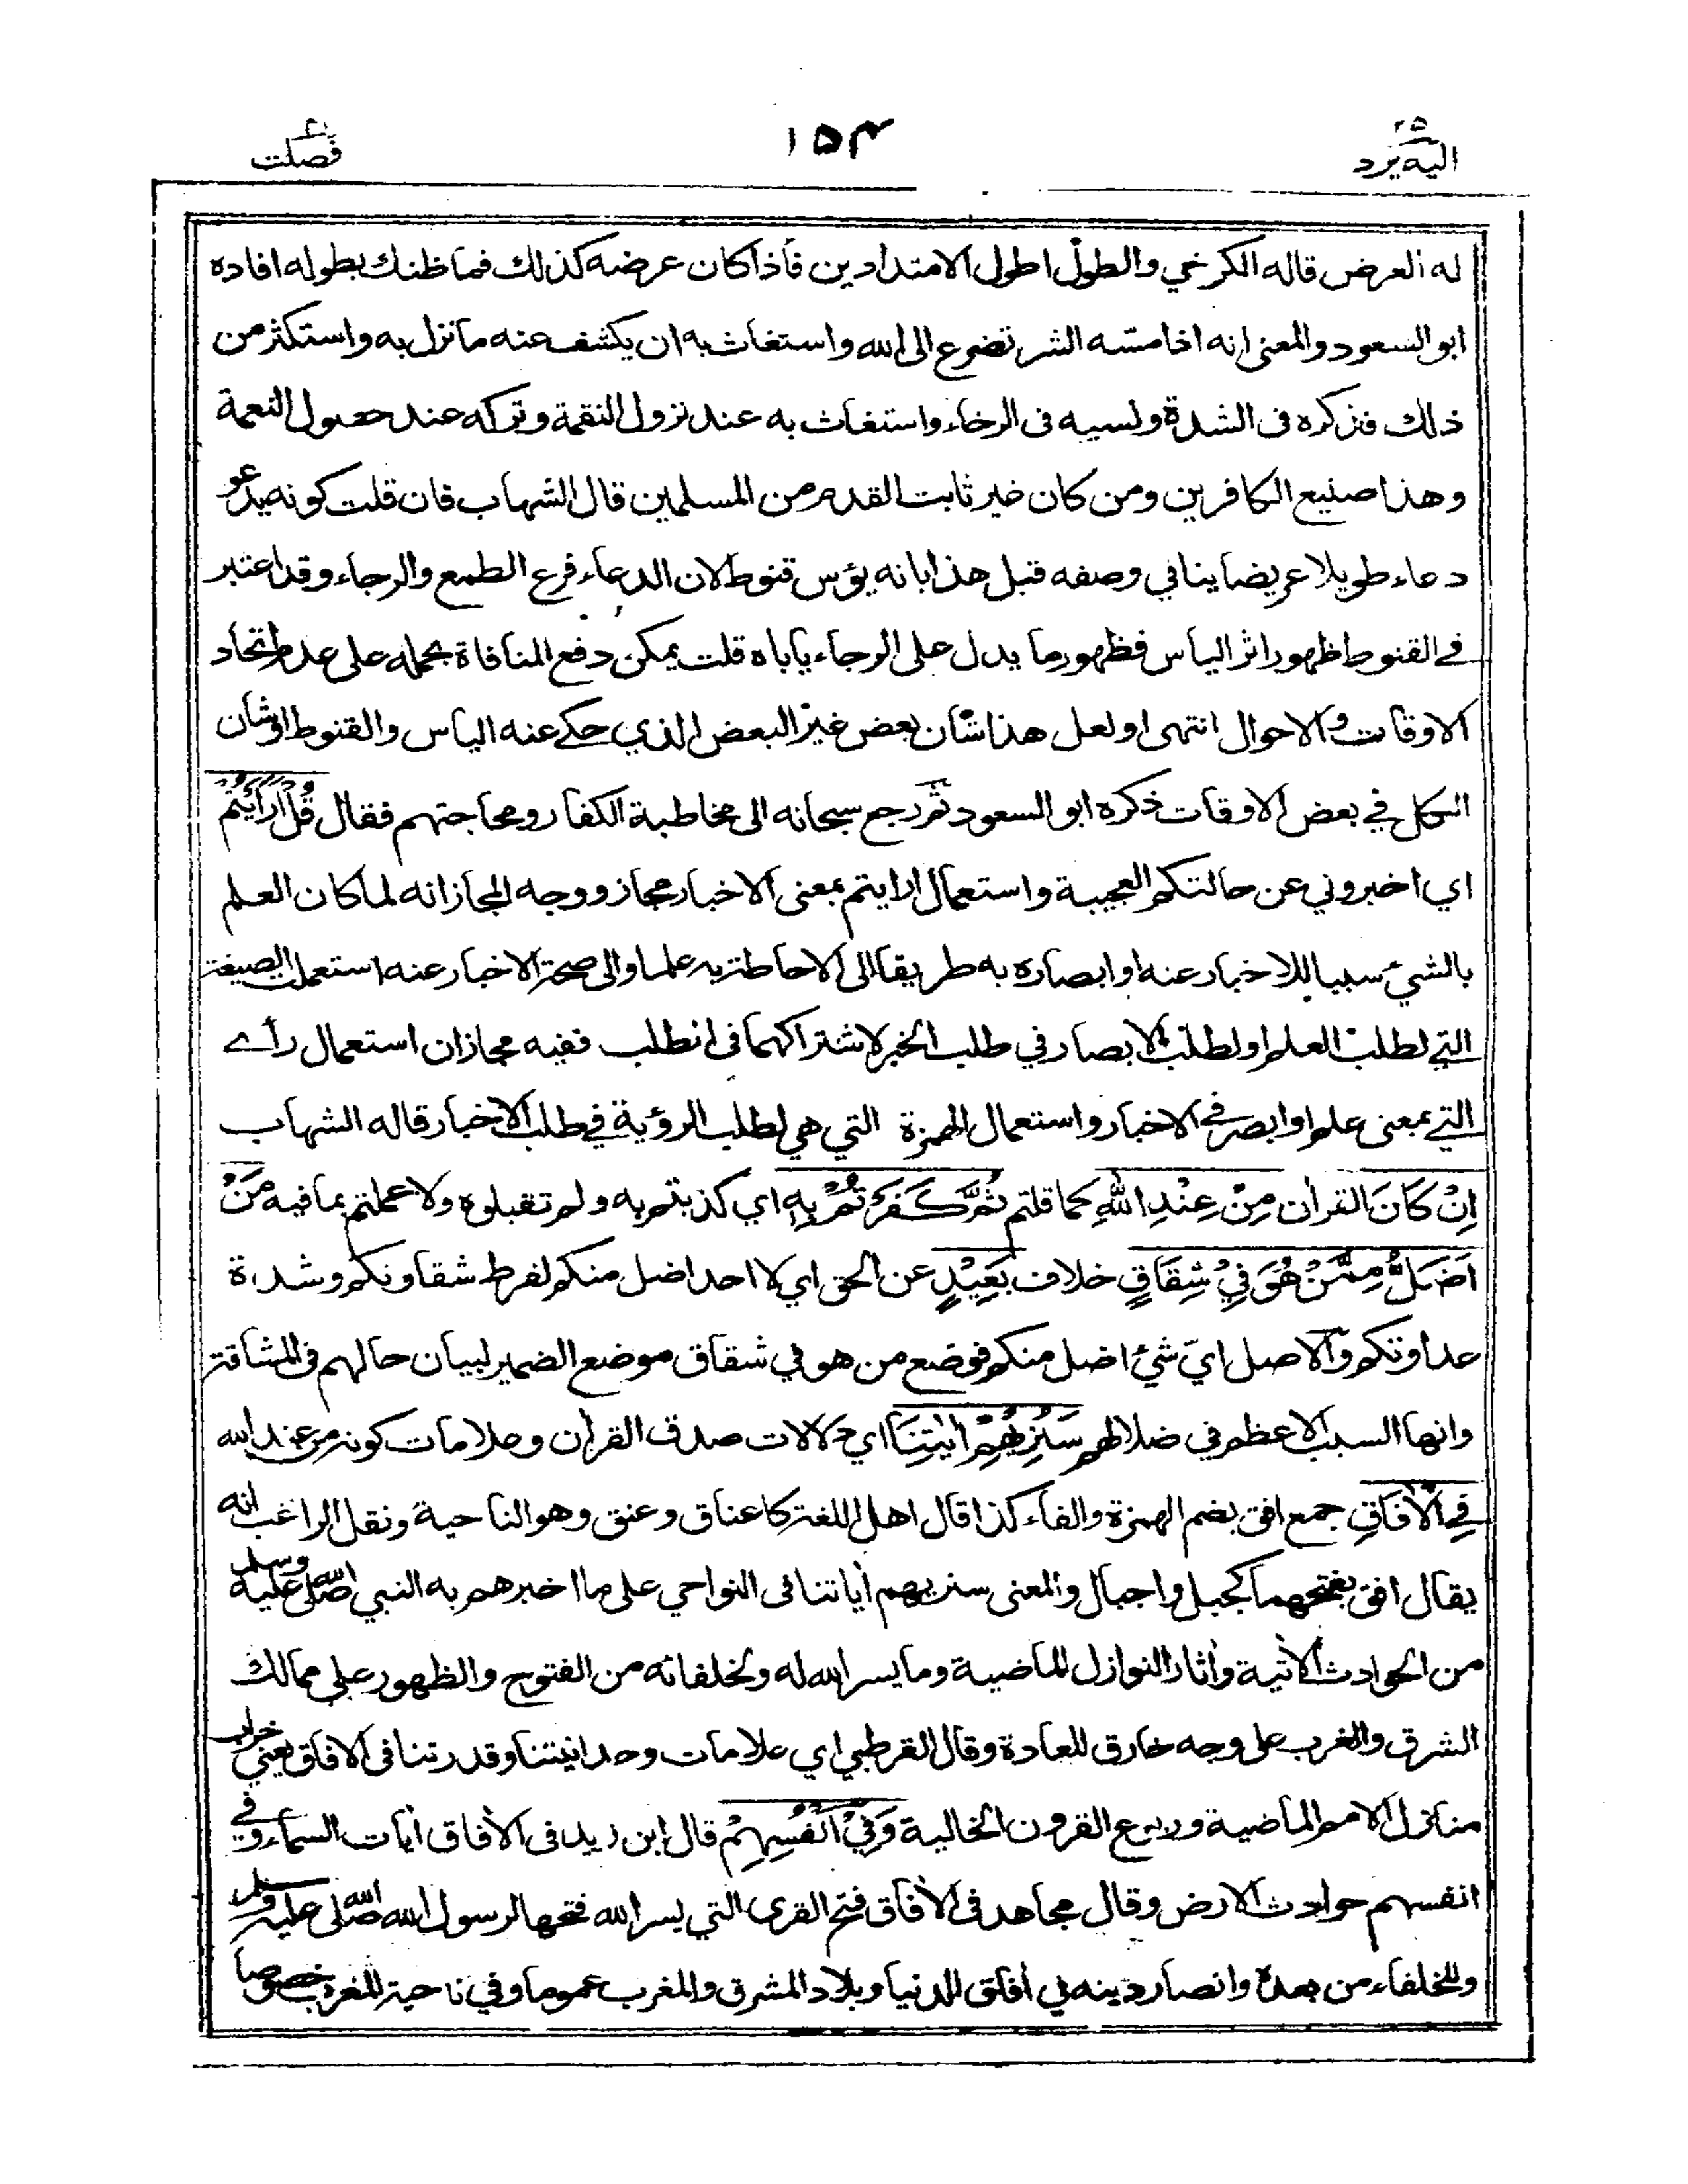 اليه يرد ٢٥
١٥٤
فصلت ٤١
له العرض قاله الكرخي والطول اطول الامتدادين فاذا كان عرضه كذلك فما ظنك بطوله افاده
ابو السعود والمعنى انه اذا مسّه الشر تضرع الى الله واستغاث به ان يكشف عنه ما نزل به واستكثر من
ذلك فذكره فى الشدة ونسيه فى الرخاء واستغاث به عند نزول النقمة وتركه عند حصول النعمة
وهذا صنيع الكافرين ومن كان غير ثابت القدم من المسلمين قال الشهاب فان قلت كونه يدعو
دعاء طويلا عريضا ينافي وصفه قبل هذا بانه يؤس قنوط لان الدعاء فرع الطمع والرجاء وقد اعتبر
في القنوط ظهور اثر الياس فظهور ما يدل على الرجاء ياباه قلت يمكن دفع المنافاة بحمله على عدم اتحاد
الاوقات والاحوال انتهى او لعل هذا شأن بعض غير البعض الذي حكي عنه الياس والقنوط او شان
الكل في بعض الاوقات ذكره ابو السعود ثم رجع سبحانه الى مخاطبة الكفار ومحاجتهم فقال قُلْ اَرَاَيْتُمْ
اي اخبروني عن حالتكم العجيبة واستعمال ارايتم بمعنى الاخبار مجاز ووجه المجاز انه لما كان العلم
بالشيئ سببا للاخبار عنه او ابصاره به طريقا الى الاحاطة به علما والى صحة الاخبار عنه استعملت الصيغة
التي لطلب العلم او لطلب الابصار في طلب الخبر لاشتراكهما فى الطلب ففيه مجازان استعمال رأے
التي بمعنى علم او ابصر في الاخبار واستعمال الهمزة التي هي لطلب الرؤية في طلب الاخبار قاله الشهاب
اِنْ كَانَ القرأن مِنْ عِنْدِ اللّٰهِ كما قلتم ثُمَّ كَفَرْتُمْ بِهٖ اي كذبتم به ولم تقبلوه ولا عملتم بما فيه مَنْ
اَضَلُّ مِمَّنْ هُوَ فِيْ شِقَاقٍ خلاف بَعِيْدٍ عن الحق اي لا احد اضل منكم لفرط شقاوتكم وشدة
عداوتكم والاصل ايّ شيئ اضل منكم فوضع من هو في شقاق موضع الضمير لبيان حالهم فى المشاقة
وانها السبب الاعظم في ضلالهم سَنُرِيْهِمْ اٰيٰتِنَا اي دلالات صدق القرأن وعلامات كونه من عند الله
فِي الْاٰفَاقِ جمع افق بضم الهمزة والفاء كذا قال اهل اللغة كاعناق وعنق وهو الناحية ونقل الراغب انه
يقال افق بفتحهما كجبل واجبال والمعنى سنريهم أياتنا فى النواحي على ما اخبرهم به النبي صلى الله عليه وسلم
من الحوادث الأتية وأثار النوازل الماضية وما يسر الله له ولخلفائه من الفتوح والظهور على ممالك
الشرق والغرب على وجه خارق للعادة وقال القرطبي اي علامات وحدانيتنا وقدرتنا فى الافاق يعني خراب
منازل الامم الماضية وربوع القرون الخالية وَفِيْ اَنْفُسِهِمْ قال ابن زيد فى الأفاق أيات السماء وفي
انفسهم حوادث الارض وقال مجاهد فى الأفاق فتح القرى التي يسر الله فتحها لرسول الله صلى الله عليه وسلم
وللخلفاء من بعده وانصار دينه في أفاق الدنيا وبلاد المشرق والمغرب عموما وفي ناحية المغرب خصوصا